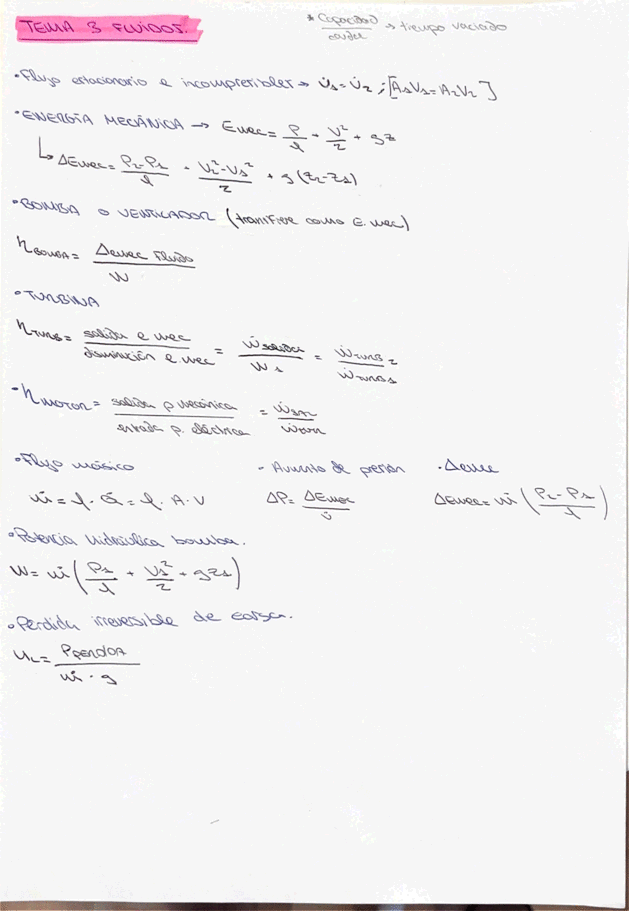 TEMA 3 FLUIDOS.
* Capacidad / caudal → tiempo vaciado
• Flujo estacionario e incompresibles → V̇1 = V̇2 ; [A1V1 = A2V2]
• ENERGÍA MECÁNICA → Emec = P/ρ + V²/2 + gz
↳ ΔEmec = P2-P1/ρ + V2²-V1²/2 + g(z2-z1)
• BOMBA O VENTILADOR (transfiere como E. mec)
η BOMBA = Δemec fluido / W
• TURBINA
η TURB = salida e mec / disminución e. mec = Ẇ salida / Ẇ s = Ẇ TURB 2 / Ẇ TURB 1
• η MOTOR = salida p mecánica / entrada p. eléctrica =
• Flujo másico - Aumento de presión • Δemec
ṁ = ρ · Q = ρ · A · V ΔP = ΔEmec / V̇ ΔEmec = ṁ (P2 - P1 / ρ)
• Potencia hidráulica bomba.
W = ṁ (P1/ρ + V1²/2 + gz1)
• Pérdida irreversible de carga.
hL = P PERDIDA / ṁ · g